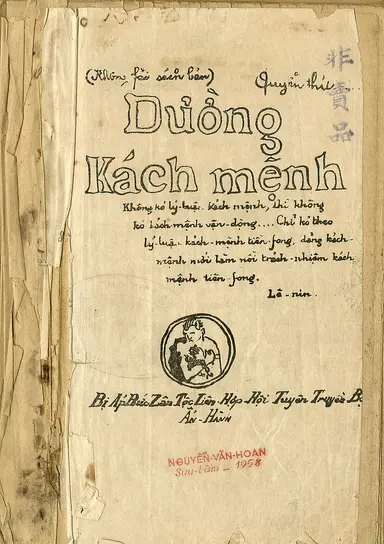 (Không fải sách bán)
Quyển thứ
非賣品
Đường
Kách mệnh
Không kó lý-luận kách mệnh, thì không
kó kách mệnh vận-động.... Chỉ kó theo
lý-luận kách-mệnh tiên-fong, đảng kách-
mệnh mới làm nỏi trách-nhiệm kách
mệnh tiên-fong.
Lê-nin.
Bị Áp Bức Zân Tộc Liên-Hợp-Hội Tuyên Truyền Bộ
Ấn-Hành
NGUYỄN-VĂN-HOAN
Sưu-tầm - 1958